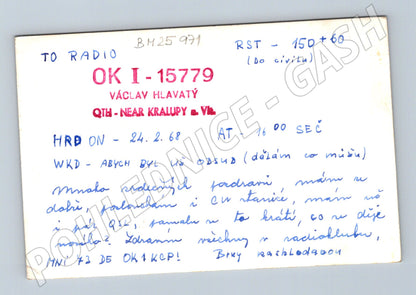 TO RADIO
BH25971
RST - 150 + 60
(Do civilu)
OK I - 15779
VÁCLAV HLAVATÝ
QTH - NEAR KRALUPY n. Vlt.
HRD ON - 24. 2. 68 AT - 16 00 SEČ
WKD - ABYCH BYL UŽ (dělám co můžu)
Mnoho srdečných pozdravů, mám se
dobře, poslouchám i CW stanice, mám už
i pár QSL, pomalu se to krátí, co se děje
nového? Zdravím všechny v radioklubu,
MNI 73 DE OK1KCP! Brzy nashledanou
POHLEDNICE - GASH